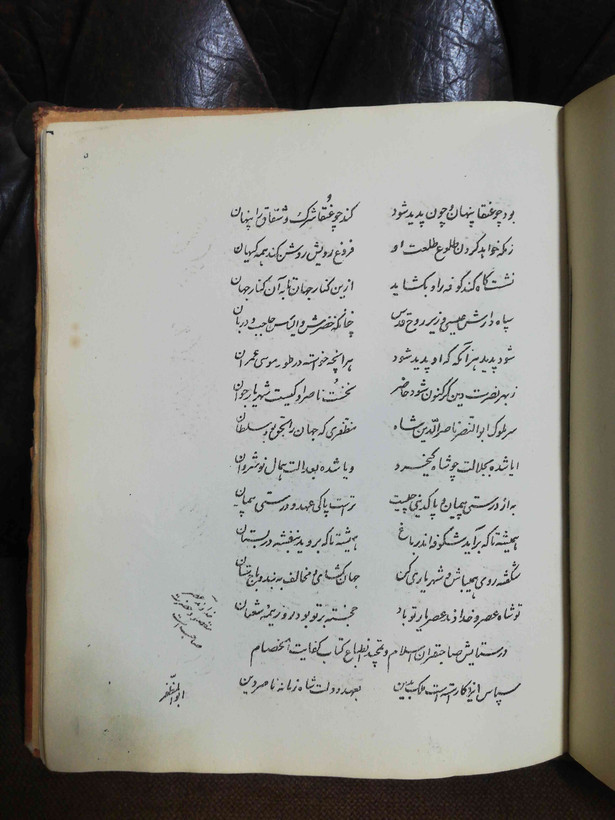 بود چو عنقا پنهان و چون پدید شود کند چو عنقا شرک و شقاق را پنهان
زمکه خواهد کردن طلوع طلعت او فروغ رویش روشن کند همه کیهان
نشستگاه کند کوفه را و بگشاید ازین کنار جهان تا به آن کنار جهان
سپاه دارش عیسی وزیر روح قدس چنانکه خضرش و الیاس حاجب و دربان
شود پدید هر آنکه که او پدید شود هر آنچه خواسته در طور موسی عمران
ز بهر نصرت دین گر کنون شود حاضر نخست ناصر او کیست شهریار جوان
سر ملوک ابو النصر ناصر الدین شاه مظفری که جهان را بحق بود سلطان
ایا شده بجلالت چو شاه کیخسرو و یا شده بعدالت همال نوشروان
به از درستی پیمان و پاک دینی چیست تراست پاکی عهد و درستی پیمان
همیشه تا که برآید شکوفه اندر باغ همیشه تا که بروید بنفشه در بستان
شکفته روی همی باش و شهریاری کن جهان گشای و مخالف به بند و باج ستان
تو شاه عصر و خداوند عصر یار تو باد خجسته بر تو بود روز نیمه شعبان
در ستایش صاحبقران اسلام و تمجید انطباع کتاب کفایت الخصام
سپاس ایزد کاراسته است ملک بدین بعهد دولت شاه زمانه ناصر دین
ابو المظفر